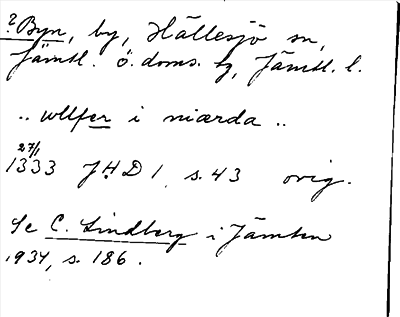 ? Byn, by, Hällesjö sn,
Jämtl. ö. doms. hg, Jämtl. l.
.. wllfer i niærda ..
27/1
1333 JHD 1, s. 43 orig.
Se C. Lindberg i Jämten
1934, s. 186.